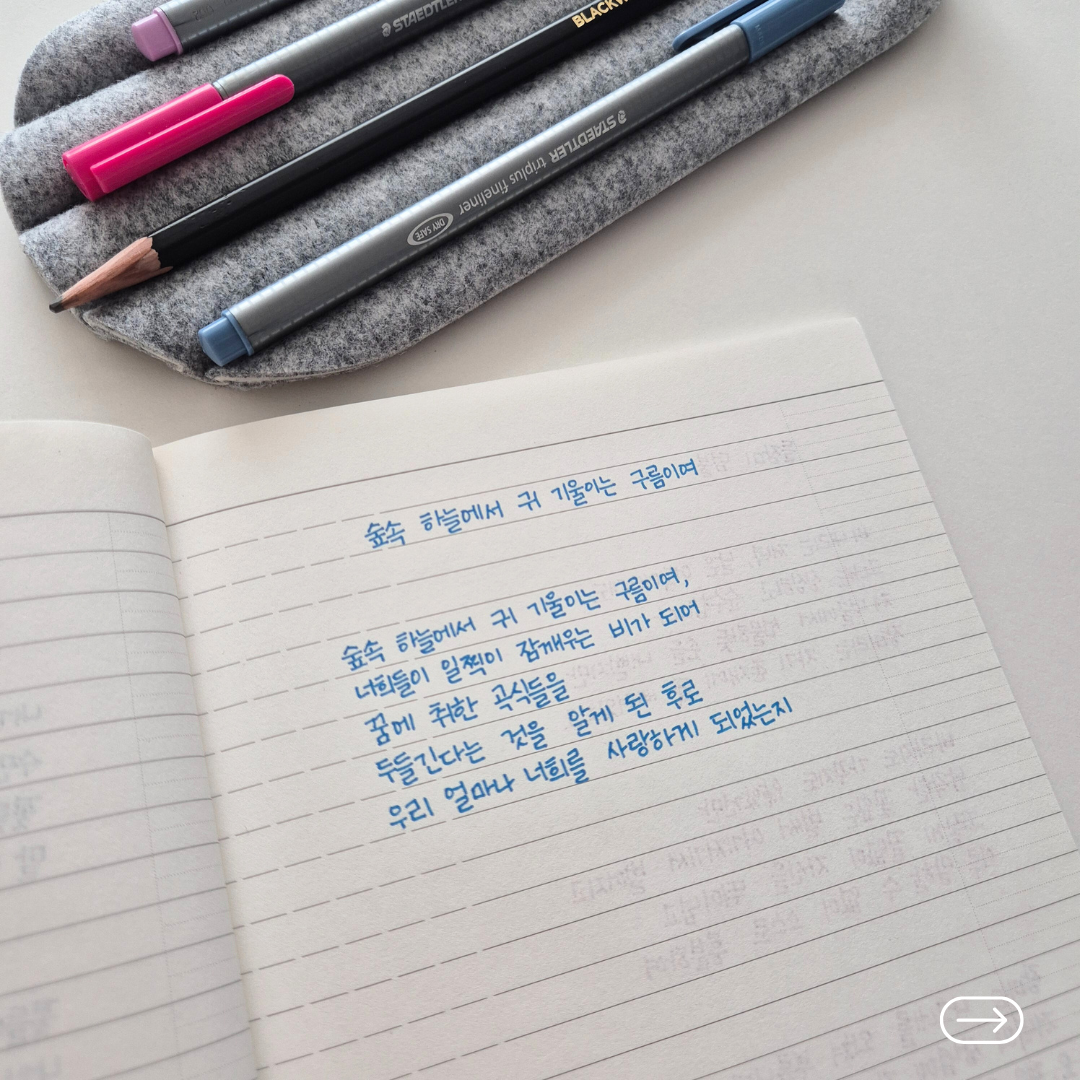 STAEDTLER
BLACKW
STAEDTLER triplus fineliner
DRY SAFE
숲속 하늘에서 귀 기울이는 구름이여
숲속 하늘에서 귀 기울이는 구름이여,
너희들이 일찍이 잠깨우는 비가 되어
꿈에 취한 곡식들을
두들긴다는 것을 알게 된 후로
우리 얼마나 너희를 사랑하게 되었는지